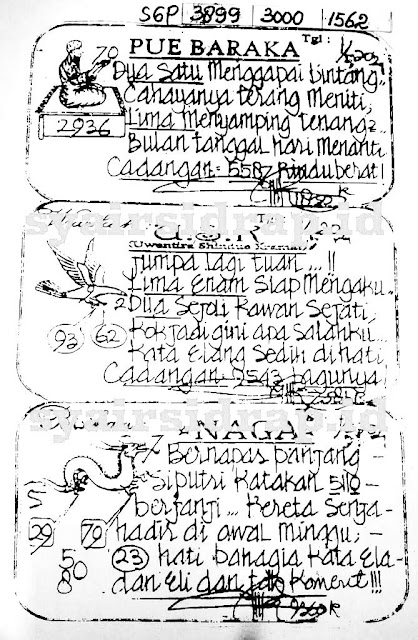 SGP 3899 3000 1562
PUE BARAKA Tgl:
70
Dua Satu Menggapai Bintang..
Cahayanya terang meniti,
Lima Menyamping tenang2..
2936
Bulan tanggal Hari Menanti
Cadangan = 5587 Rindu berat!
U.S.K
(Uwentira Shinduo Kramat)
Jumpa lagi tuan ...!!
Lima Enam Siap Mengaku..
Dua Sejoli Kawan Sejati,
2
93 62
Kok jadi gini apa Salahku...
Kata Elang Sedih di hati
Cadangan = 9543 Lagunya
syairsidrap.id
-NAGA-
7
Bernapas panjang -
Siputri Katakan 5110 -
berjanji ... Kereta Senja -
5
29 79
hadir di awal minggu, -
5 8 0
23 hati bahagia Kata Ela-
dan Eli dan tak Komerut!!!